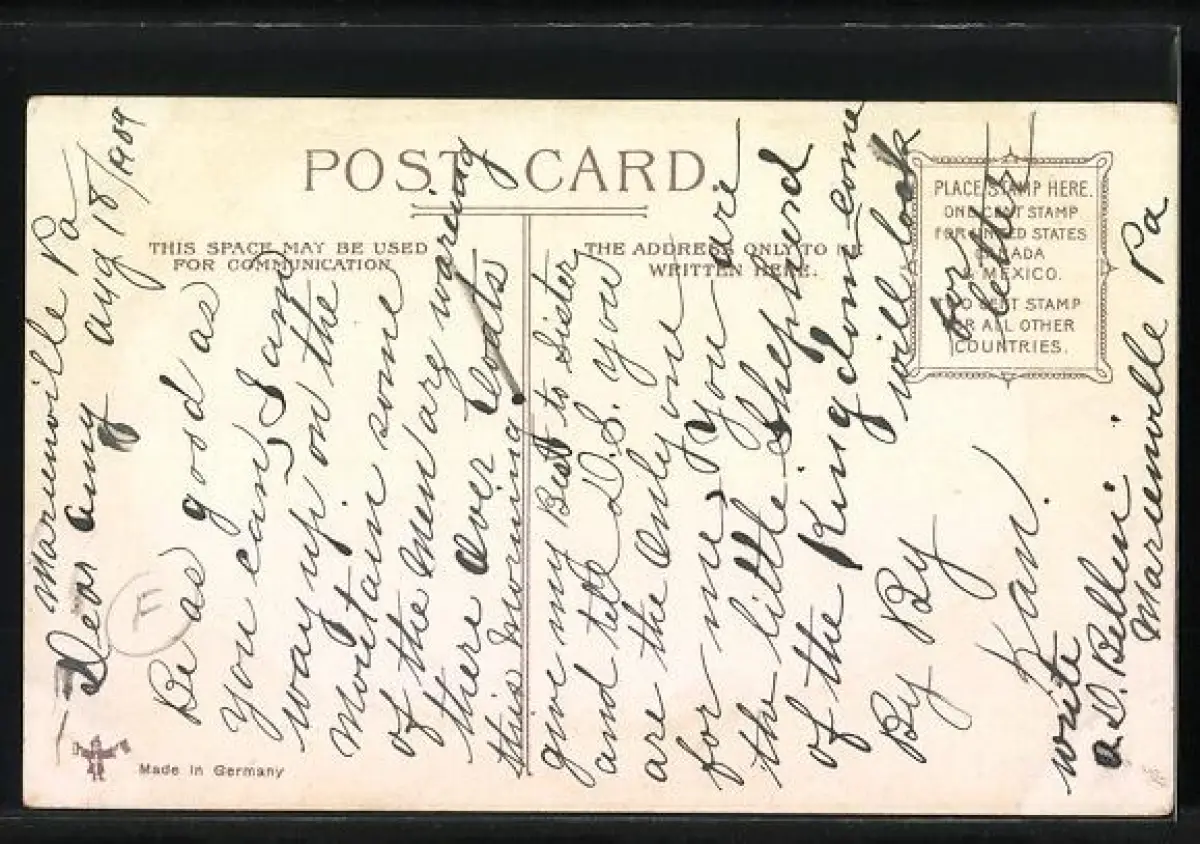 POST CARD
THIS SPACE MAY BE USED
FOR COMMUNICATION
THE ADDRESS ONLY TO BE
WRITTEN HERE.
PLACE STAMP HERE.
ONE CENT STAMP
FOR UNITED STATES
CANADA
& MEXICO.
TWO CENT STAMP
FOR ALL OTHER
COUNTRIES.
Marienville Pa
Aug 18/1909
Dear Amy
Be as good as
you can, I am
way up on the
Mountain some
of the men are wareing
there Over Coats
this morning.
give my Best to Sister
and tell D.S. you
are the Only one
for me, you are
the little Shepherd
of the Kingdom come
will look
for
letter
By By
Kan.
write
a. D. Bellui.
Marienville Pa
Made in Germany